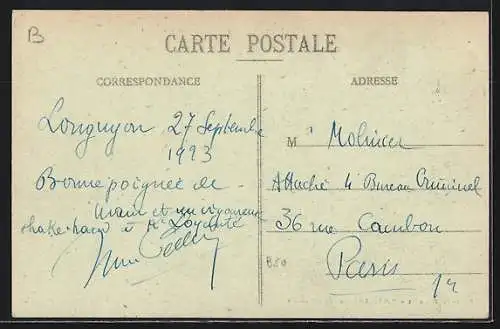 B
CARTE POSTALE
CORRESPONDANCE
ADRESSE
Longuyon 27 Septembre
1923
Bonne poignée de
main et un vigoureux
shake-hand à Mr
M
Attaché 4 Bureau Criminel
36 rue Cambon
Paris
B50